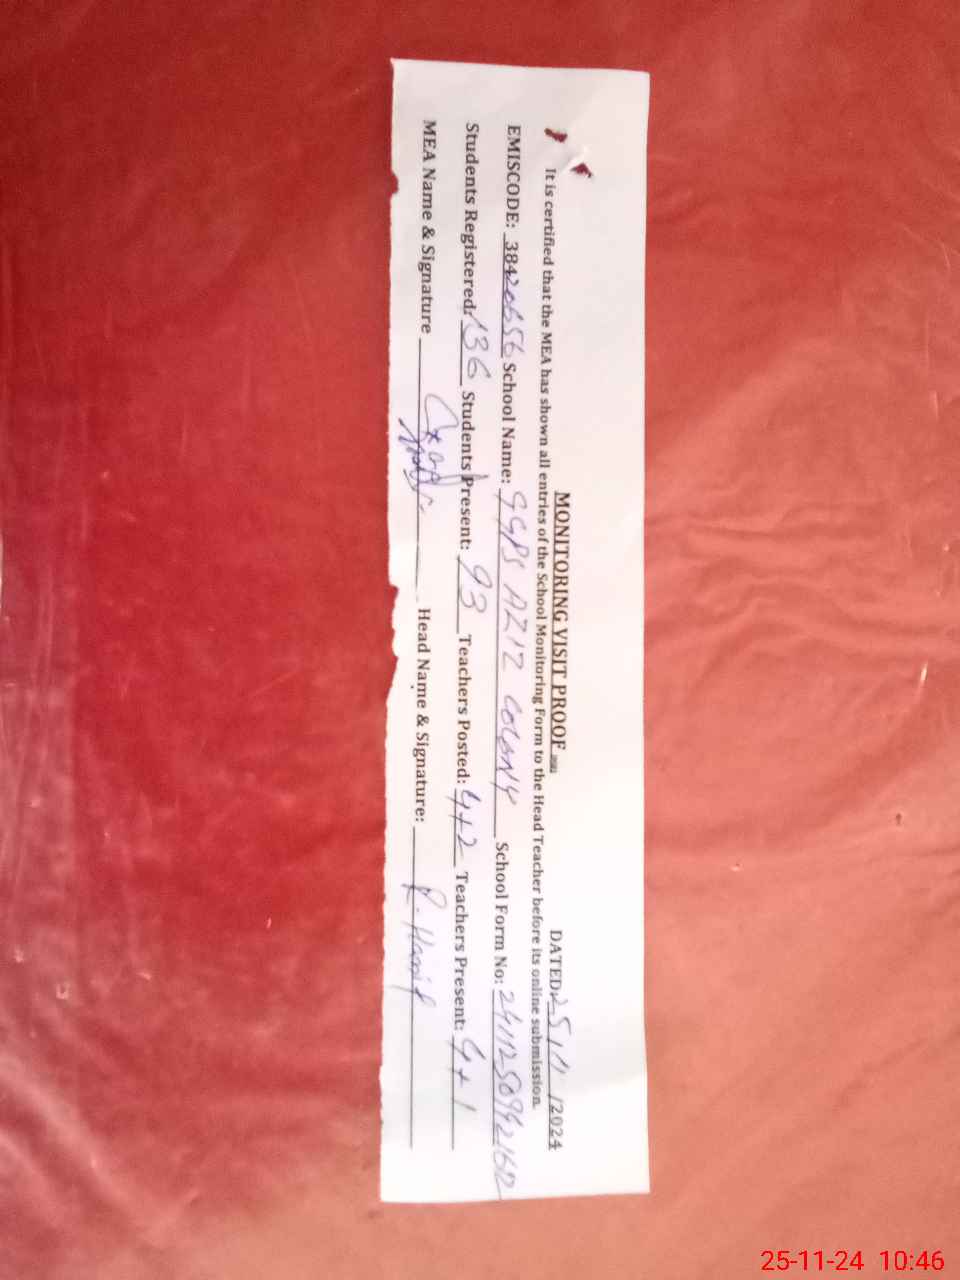 MONITORING VISIT PROOF DATED: 25/11/2024
It is certified that the MEA has shown all entries of the School Monitoring Form to the Head Teacher before its online submission.
EMISCODE: 38420656 School Name: GGPS AZIZ COLONY School Form No:
Students Registered: 136 Students Present: 93 Teachers Posted: 4+2 Teachers Present: 4+1
MEA Name & Signature Head Name & Signature: R. Hanif
25-11-24 10:46